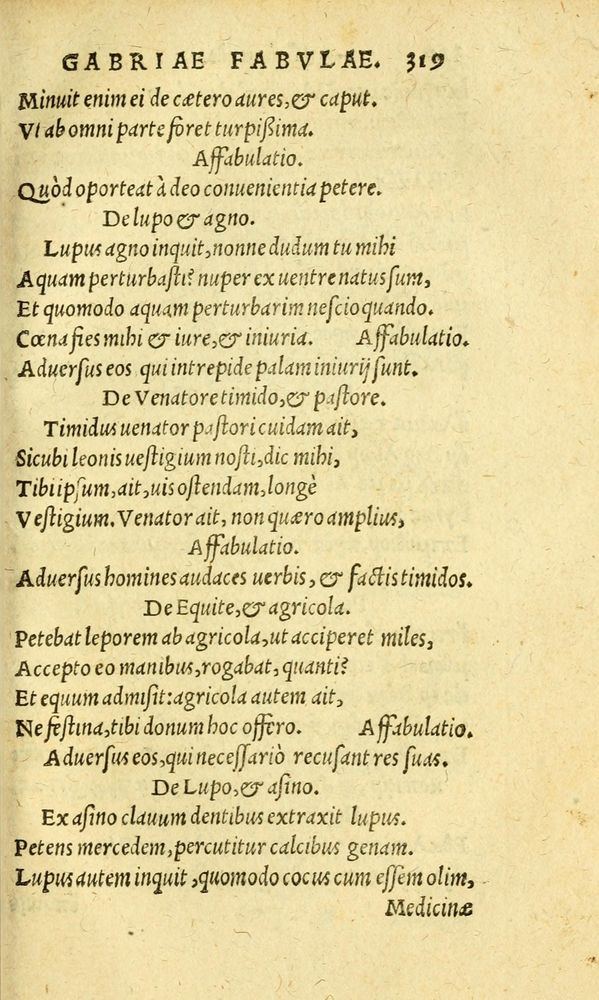 GABRIAE FABVLAE. 319
Minuit enim ei de cætero aures, & caput.
Vt ab omni parte foret turpißima.
Affabulatio.
Quòd oporteat à deo conuenientia petere.
De lupo & agno.
Lupus agno inquit, nonne dudum tu mihi
Aquam perturbasti? nuper ex uentre natus sum,
Et quomodo aquam perturbarim nescio quando.
Cœna fies mihi & iure, & iniuria. Affabulatio.
Aduersus eos qui intrepide palam iniurij sunt.
De Venatore timido, & pastore.
Timidus uenator pastori cuidam ait,
Sicubi leonis uestigium nosti, dic mihi,
Tibi ipsum, ait, uis ostendam, longè
Vestigium. Venator ait, non quæro amplius,
Affabulatio.
Aduersus homines audaces uerbis, & factis timidos.
De Equite, & agricola.
Petebat leporem ab agricola, ut acciperet miles,
Accepto eo manibus, rogabat, quanti?
Et equum admisit: agricola autem ait,
Ne festina, tibi donum hoc offero. Affabulatio.
Aduersus eos, qui necessariò recusant res suas.
De Lupo, & asino.
Ex asino clauum dentibus extraxit lupus.
Petens mercedem, percutitur calcibus genam.
Lupus autem inquit, quomodo cocus cum essem olim,
Medicinæ